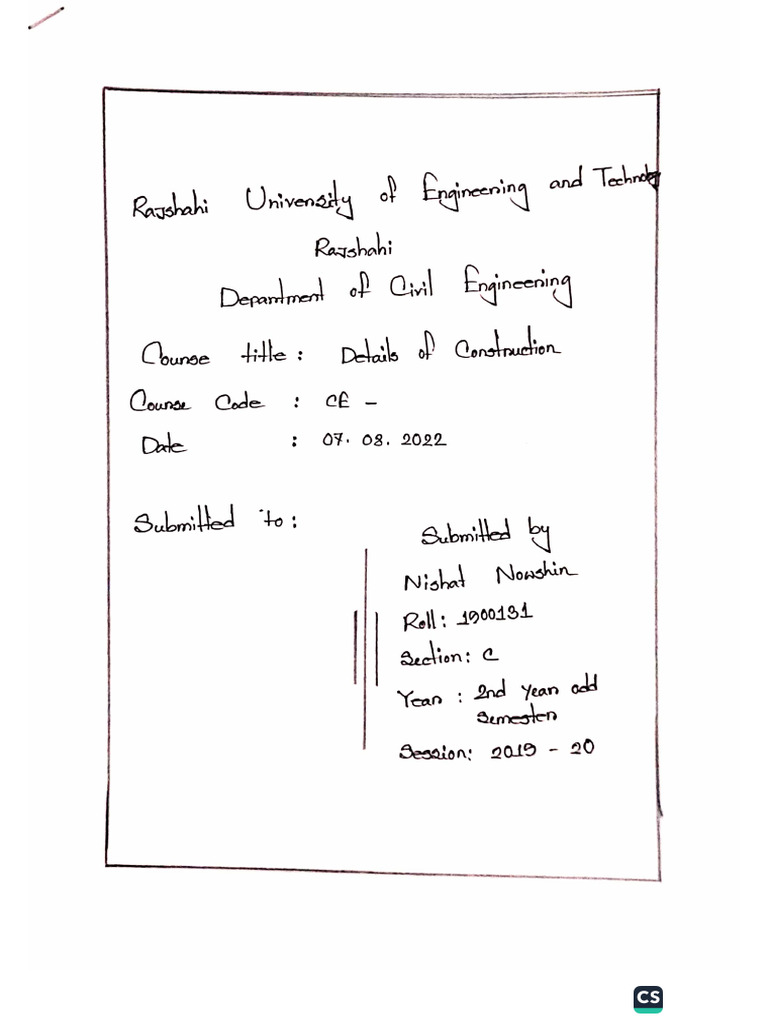 Rajshahi University of Engineering and Technology
Rajshahi
Department of Civil Engineering
Course title : Details of Construction
Course Code : CE -
Date : 07. 08. 2022
Submitted to :
Submitted by
Nishat Nowshin
Roll : 1900131
Section : C
Year : 2nd Year odd
Semester
Session : 2019 - 20
CS